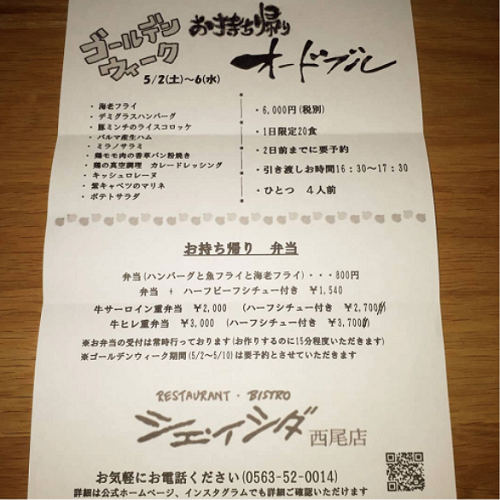 ゴールデン
ウィーク
お持ち帰り
オードブル
5/2(土)～6(水)
・海老フライ
・デミグラスハンバーグ
・豚ミンチのライスコロッケ
・パルマ産生ハム
・ミラノサラミ
・鶏モモ肉の香草パン粉焼き
・鶏の真空調理 カレードレッシング
・キッシュロレーヌ
・紫キャベツのマリネ
・ポテトサラダ
・6,000円(税別)
・1日限定20食
・2日前までに要予約
・引き渡しお時間16：30～17：30
・ひとつ 4人前
お持ち帰り 弁当
弁当(ハンバーグと魚フライと海老フライ)・・・800円
弁当 + ハーフビーフシチュー付き ￥1,540
牛サーロイン重弁当 ￥2,000 (ハーフシチュー付き ￥2,700)
牛ヒレ重弁当 ￥3,000 (ハーフシチュー付き ￥3,700)
※お弁当の受付は常時行っております(お作りするのに15分程度いただきます)
※ゴールデンウィーク期間(5/2～5/10)は要予約とさせていただきます
RESTAURANT・BISTRO
シェイシダ 西尾店
お気軽にお電話ください(0563-52-0014)
詳細は公式ホームページ、インスタグラムでも詳細ご確認いただけます